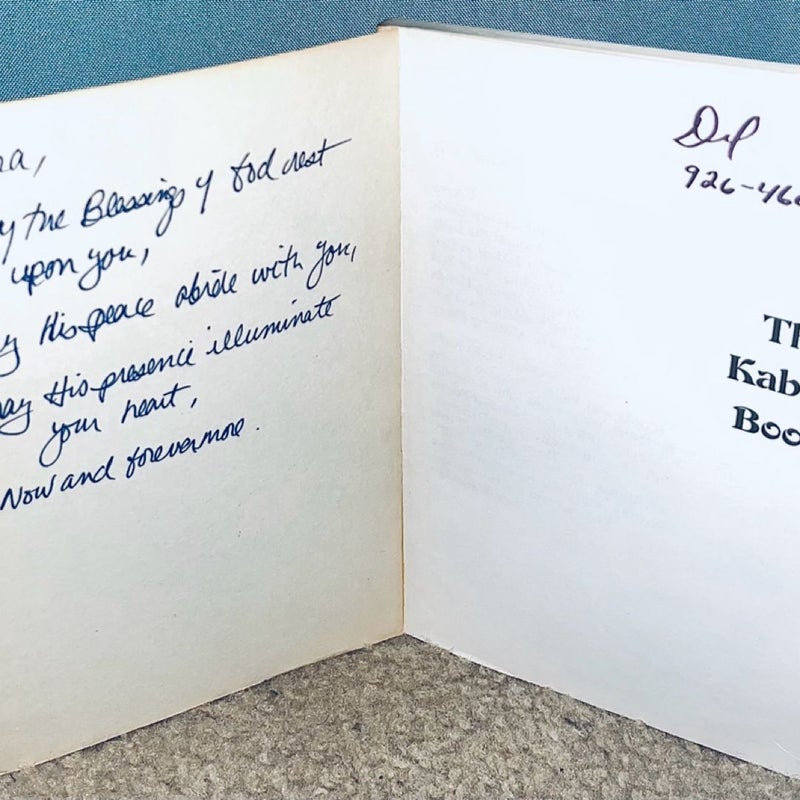 ra,
y the Blessings of God rest
upon you,
y His peace abide with you,
ay His presence illuminate
your heart,
Now and forevermore.
926-466
Th
Kab
Boo